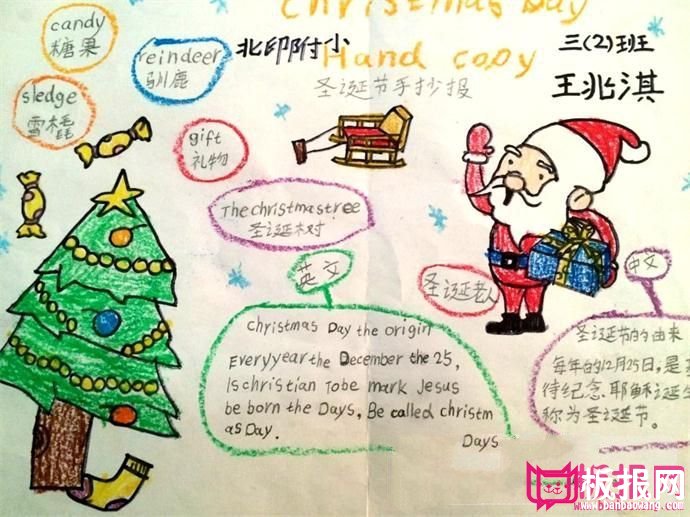 Christmas Day
Hand copy
圣诞节手抄报
北印附小
三(2)班
王兆淇
candy
糖果
reindeer
驯鹿
sledge
雪橇
gift
礼物
The christmas tree
圣诞树
英文
Christmas Day the origin
Everyyear the December the 25,
Is christian Tobe mark Jesus
be born the Days, Be called christm
as Day.
Days
圣诞老人
中文
圣诞节的由来
每年的12月25日,是
待纪念.耶稣诞生
称为圣诞节。
板报网
www.banbaowang.com